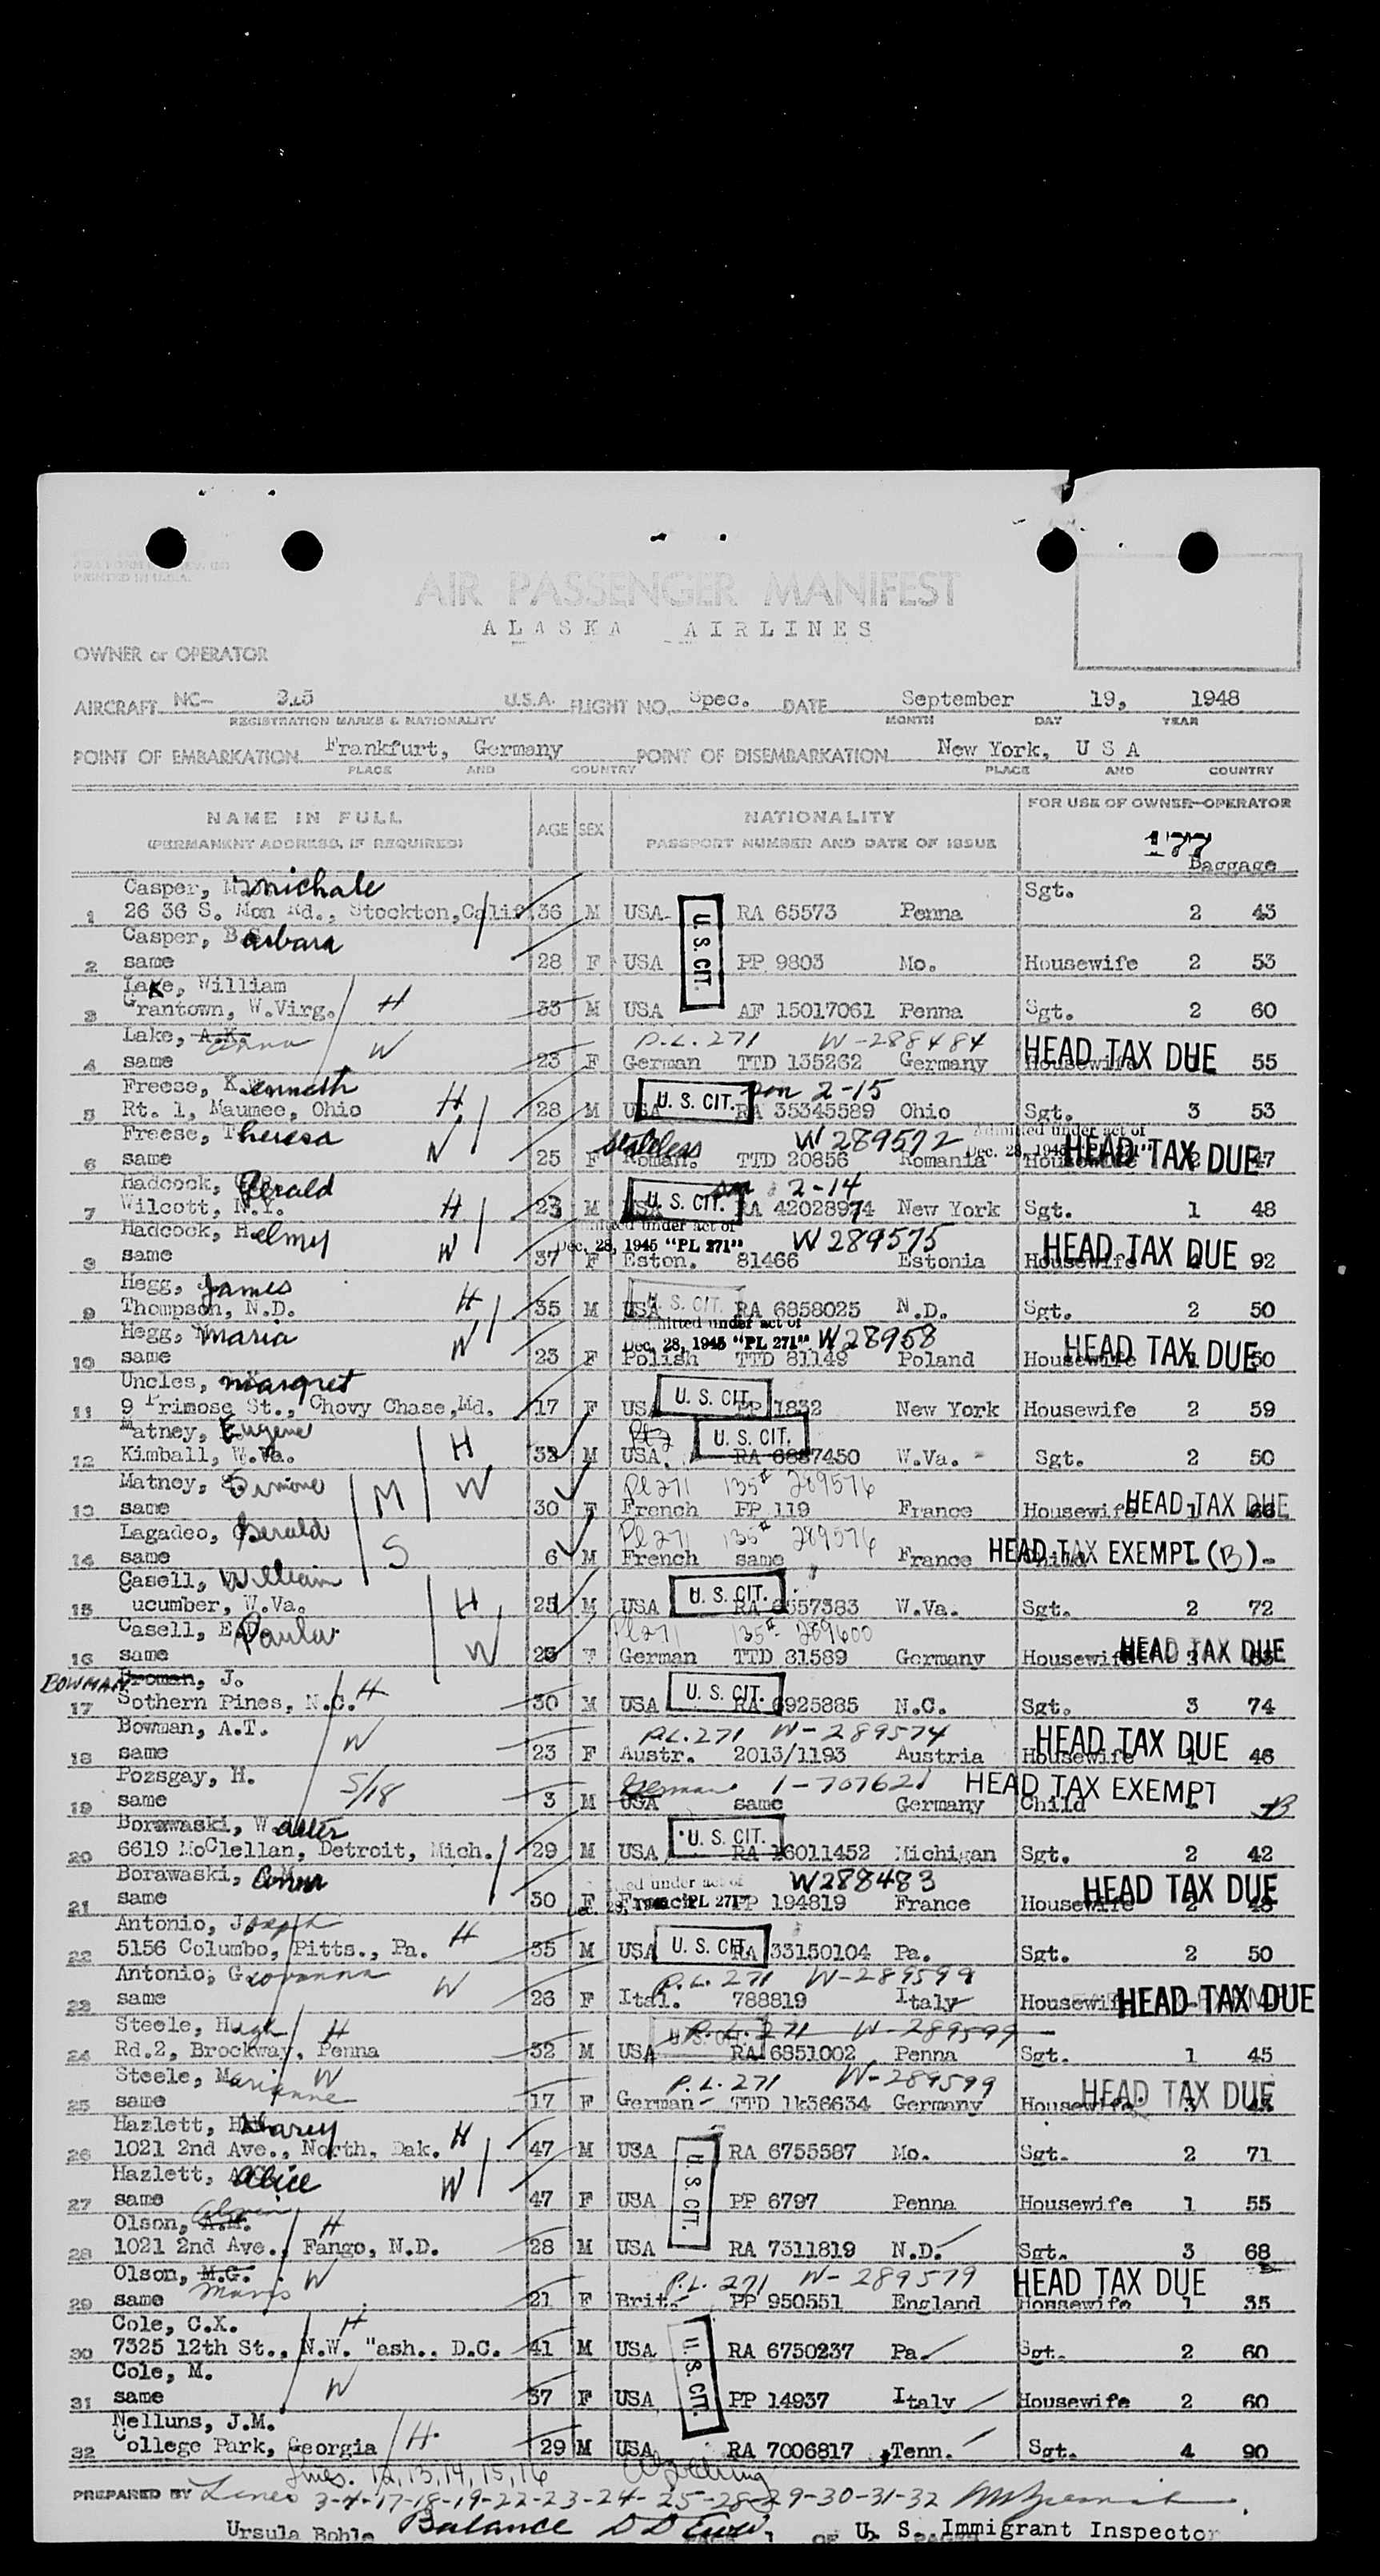 PRINTED IN U.S.A.
AIR PASSENGER MANIFEST
ALASKA AIRLINES
OWNER or OPERATOR
AIRCRAFT NC- 315 U.S.A. FLIGHT NO. Spec. DATE September 19, 1948
REGISTRATION MARKS & NATIONALITY MONTH DAY YEAR
POINT OF EMBARKATION Frankfurt, Germany POINT OF DISEMBARKATION New York, U S A
PLACE AND COUNTRY PLACE AND COUNTRY
NAME IN FULL AGE SEX NATIONALITY FOR USE OF OWNER-OPERATOR
(PERMANENT ADDRESS, IF REQUIRED) PASSPORT NUMBER AND DATE OF ISSUE 177
Baggage
Casper, michale Sgt.
1 26 36 S. Mon Rd., Stockton, Calif. 36 M USA U. S. CIT. RA 65573 Penna 2 43
Casper, Barbara
2 same 28 F USA PP 9803 Mo. Housewife 2 53
Lake, William
3 Grantown, W.Virg. H 33 M USA AF 15017061 Penna Sgt. 2 60
Lake, A.K. anna P.L. 271 W-288484
4 same W 23 F German TTD 135262 Germany Housewife HEAD TAX DUE 55
Freese, Kenneth H 2-15
5 Rt. 1, Maumee, Ohio 28 M USA U. S. CIT. RA 35345589 Ohio Sgt. 3 53
Freese, Theresa W stateless W289572 Admitted under act of
6 same 25 F Roman. TTD 20856 Romania Dec. 28, 1945 Housewife HEAD TAX DUE 47
Hadcock, Gerald 2-14
7 Wilcott, N.Y. H 23 M USA U. S. CIT. RA 42028974 New York Sgt. 1 48
Hadcock, Helmy W Admitted under act of Dec. 28, 1945 "PL 271" W289575
8 same 37 F Eston. 81466 Estonia Housewife HEAD TAX DUE 92
Hegg, James
9 Thompson, N.D. H 35 M USA U. S. CIT. RA 6858025 N.D. Sgt. 2 50
Hegg, Maria W Admitted under act of Dec. 28, 1945 "PL 271" W28958
10 same 23 F Polish TTD 81149 Poland Housewife HEAD TAX DUE 50
Uncles, margret
11 9 Primose St., Chovy Chase, Md. 17 F USA U. S. CIT. PP 1832 New York Housewife 2 59
Matney, Eugene
12 Kimball, W.Va. H 32 M USA. U. S. CIT. RA 6887450 W.Va. Sgt. 2 50
Matney, Simone Pl 271 135# 289576
13 same M W 30 F French PP 119 France Housewife HEAD TAX DUE 66
Lagadeo, Gerald Pl 271 135# 289576
14 same S 6 M French same France Child HEAD TAX EXEMPT (B)
Casell, William
15 ucumber, W.Va. H 25 M USA U. S. CIT. RA 6557383 W.Va. Sgt. 2 72
Casell, Paula Pl 271 135# 289600
16 same W 25 F German TTD 81589 Germany Housewife HEAD TAX DUE
BOWMAN Broman, J.
17 Sothern Pines, N.C. H 30 M USA U. S. CIT. RA 6925885 N.C. Sgt. 3 74
Bowman, A.T. P.L. 271 W-289574
18 same W 23 F Austr. 2013/1193 Austria Housewife HEAD TAX DUE 1 46
Pozsgay, H. German 1-707621 HEAD TAX EXEMPT
19 same S/18 3 M USA same Germany Child B
Borawaski, Walter
20 6619 McClellan, Detroit, Mich. 29 M USA U. S. CIT. RA 16011452 Michigan Sgt. 2 42
Borawaski, under act of W288483
21 same 30 F PL 271 PP 194819 France Housewife HEAD TAX DUE 2 48
Antonio, Joseph
22 5156 Columbo, Pitts., Pa. H 35 M USA U. S. CIT. RA 33150104 Pa. Sgt. 2 50
Antonio, Giovanna P.L. 271 W-289598
23 same W 26 F Ital. 788819 Italy Housewife HEAD TAX DUE
Steele, Hugh P.L. 271 W-289599
24 Rd.2, Brockway, Penna H 32 M USA U. S. CIT. RA 6851002 Penna Sgt. 1 45
Steele, Marianne P.L. 271 W-289599
25 same W 17 F German TTD 1k36634 Germany Housewife HEAD TAX DUE
Hazlett, Harey
26 1021 2nd Ave., North, Dak. H 47 M USA U. S. CIT. RA 6755587 Mo. Sgt. 2 71
Hazlett, Alice
27 same W 47 F USA PP 6797 Penna Housewife 1 55
Olson, A.M.
28 1021 2nd Ave., Fango, N.D. H 28 M USA RA 7311819 N.D. Sgt. 3 68
Olson, M.G. Mavis P.L. 271 W-289579
29 same W 21 F Brit. PP 950551 England Housewife HEAD TAX DUE 1 35
Cole, C.X.
30 7325 12th St., N.W. "ash., D.C. H 41 M USA U. S. CIT. RA 6750237 Pa. Sgt. 2 60
Cole, M.
31 same W 37 F USA PP 14937 Italy Housewife 2 60
Nelluns, J.M.
32 College Park, Georgia H. 29 M USA RA 7006817 Tenn. Sgt. 4 90
Lines. 12, 13, 14, 15, 16
PREPARED BY Lines 3-4-17-18-19-22-23-24-25-28-29-30-31-32
Ursula Bohle Balance U. S. Immigrant Inspector